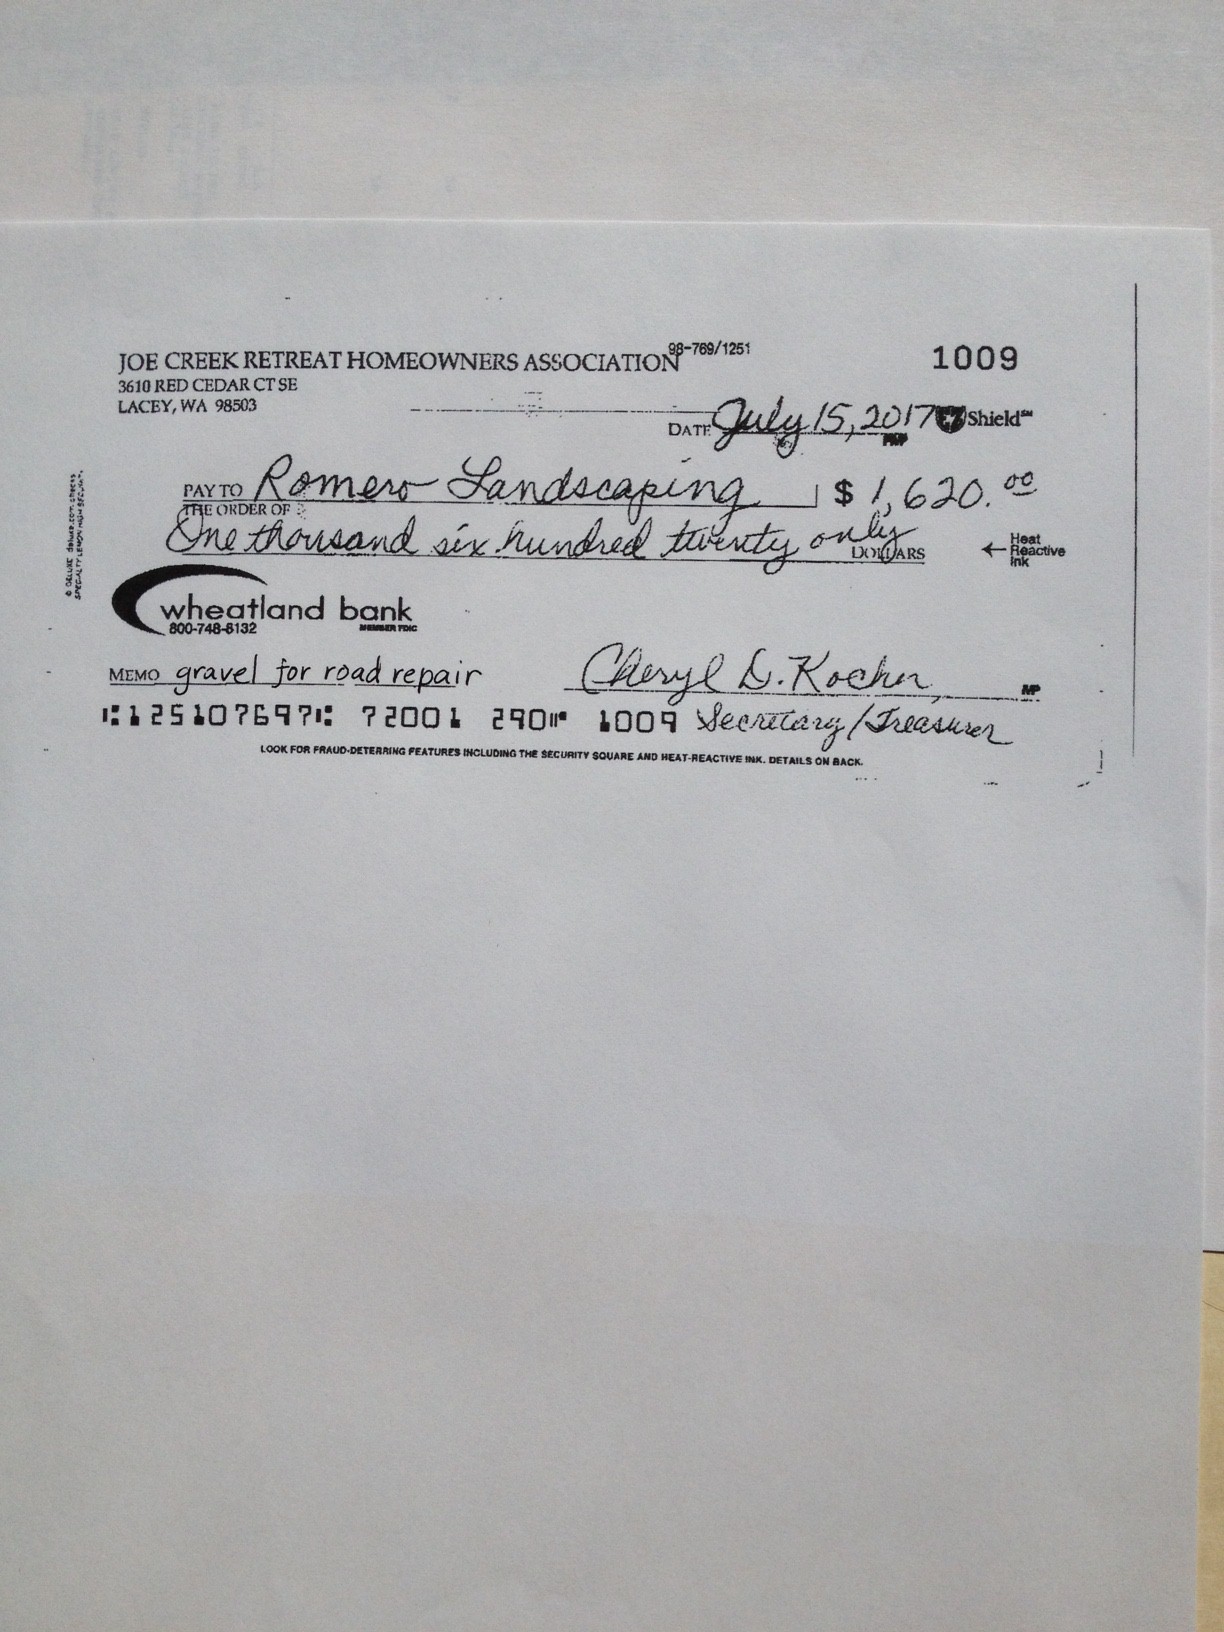 JOE CREEK RETREAT HOMEOWNERS ASSOCIATION 98-769/1251 1009
3610 RED CEDAR CT SE
LACEY, WA 98503
DATE July 15, 2017 EZ Shield℠
PAY TO THE ORDER OF Romero Landscaping $ 1,620.00
One thousand six hundred twenty only DOLLARS
← Heat Reactive Ink
wheatland bank
800-748-6132 MEMBER FDIC
MEMO gravel for road repair Cheryl D. Kocher, MP
⑆125107697⑆ 72001 290⑈ 1009 Secretary/Treasurer
LOOK FOR FRAUD-DETERRING FEATURES INCLUDING THE SECURITY SQUARE AND HEAT-REACTIVE INK. DETAILS ON BACK.
© DELUXE deluxe.com/checks